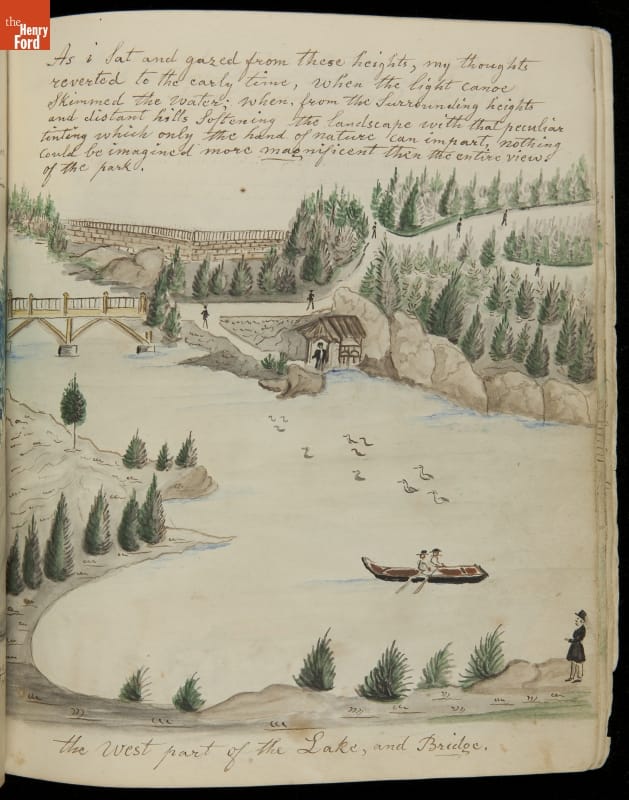 the
Henry
Ford
As i Sat and gazed from these heights, my thoughts
reverted to the early time, when the light canoe
Skimmed the water; when, from the Surrounding heights
and distant hills Softening the landscape with that peculiar
tinting which only the hand of nature can impart, nothing
Could be imagined more magnificent then the entire view
of the park.
the West part of the Lake, and Bridge.